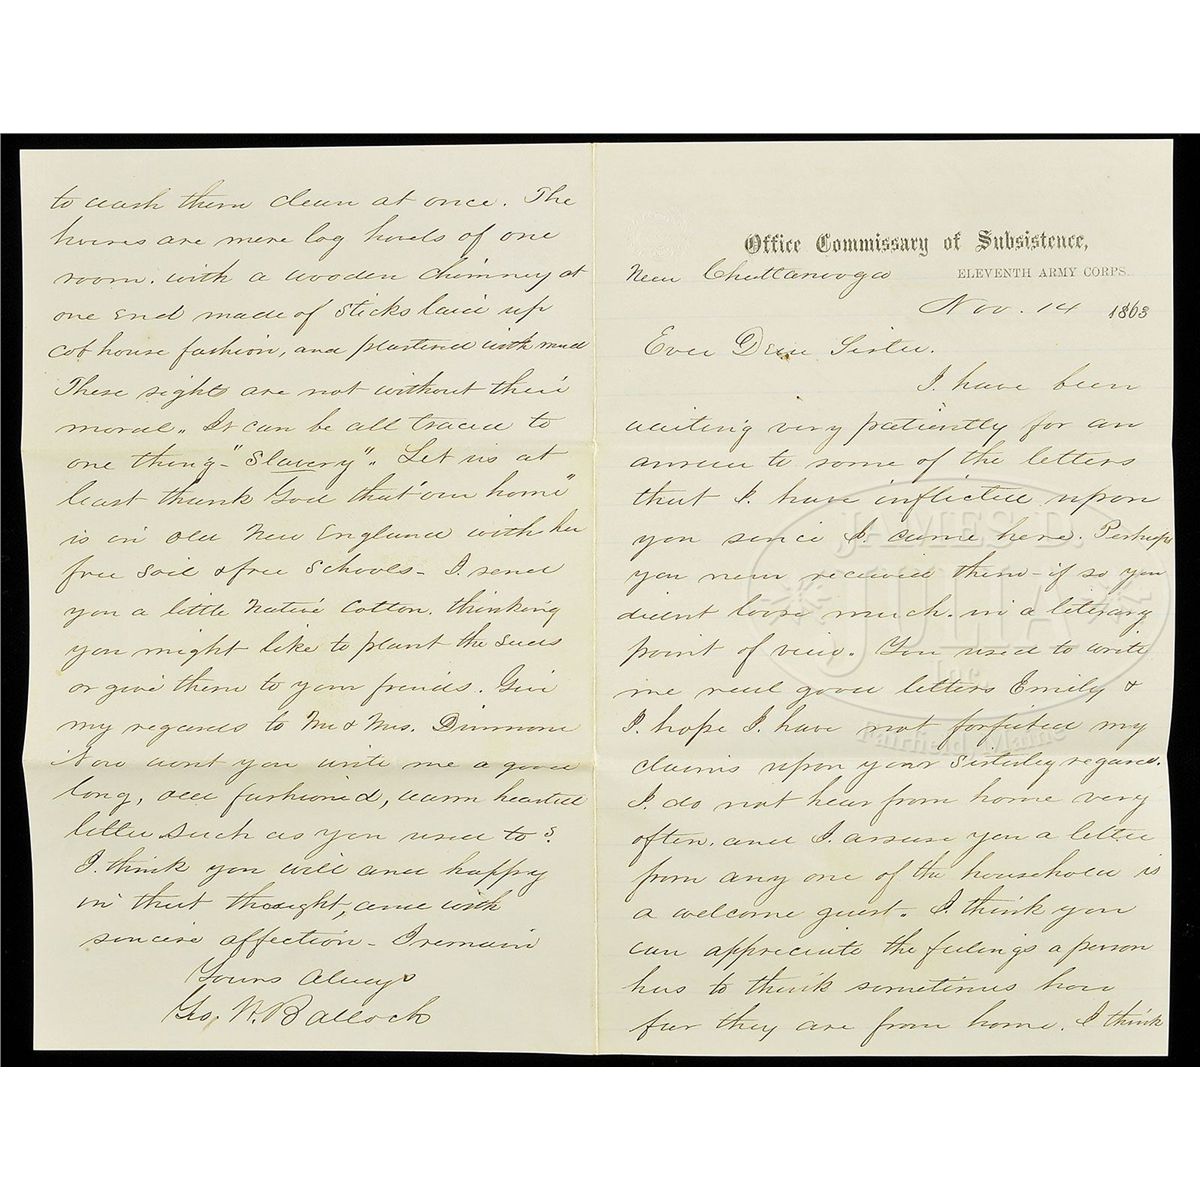 Office Commissary of Subsistence,
ELEVENTH ARMY CORPS.
Near Chattanooga
Nov. 14 1863
Ever Dear Sister.
I have been
waiting very patiently for an
answer to some of the letters
that I have inflicted upon
you since I came here. Perhaps
you never received them - if so you
didn't loose much in a literary
point of view. You used to write
me real good letters Emily &
I hope I have not forfeited my
claims upon your Sisterly regard.
I do not hear from home very
often, and I assure you a letter
from any one of the household is
a welcome guest. I think you
can appreciate the feelings a person
has to think sometimes how
far they are from home. I think
to wash them clean at once. The
houses are mere log hovels of one
room, with a wooden chimney at
one end made of Sticks laid up
Cob house fashion, and plastered with mud
These sights are not without their
moral. It can be all traced to
one thing - "Slavery". Let us at
least thank God that "our home"
is in old New England with her
free soil & free Schools - I send
you a little Native Cotton, thinking
you might like to plant the Seeds
or give them to your friends. Give
my regards to Mr & Mrs.
Now wont you write me a good
long, old fashioned, warm hearted
letter such as you used to?
I think you will and happy
in that thought, and with
sincere affection - I remain
Yours Always
Geo. W. Balloch
JAMES D.
JULIA
Inc.
Fairfield, Maine